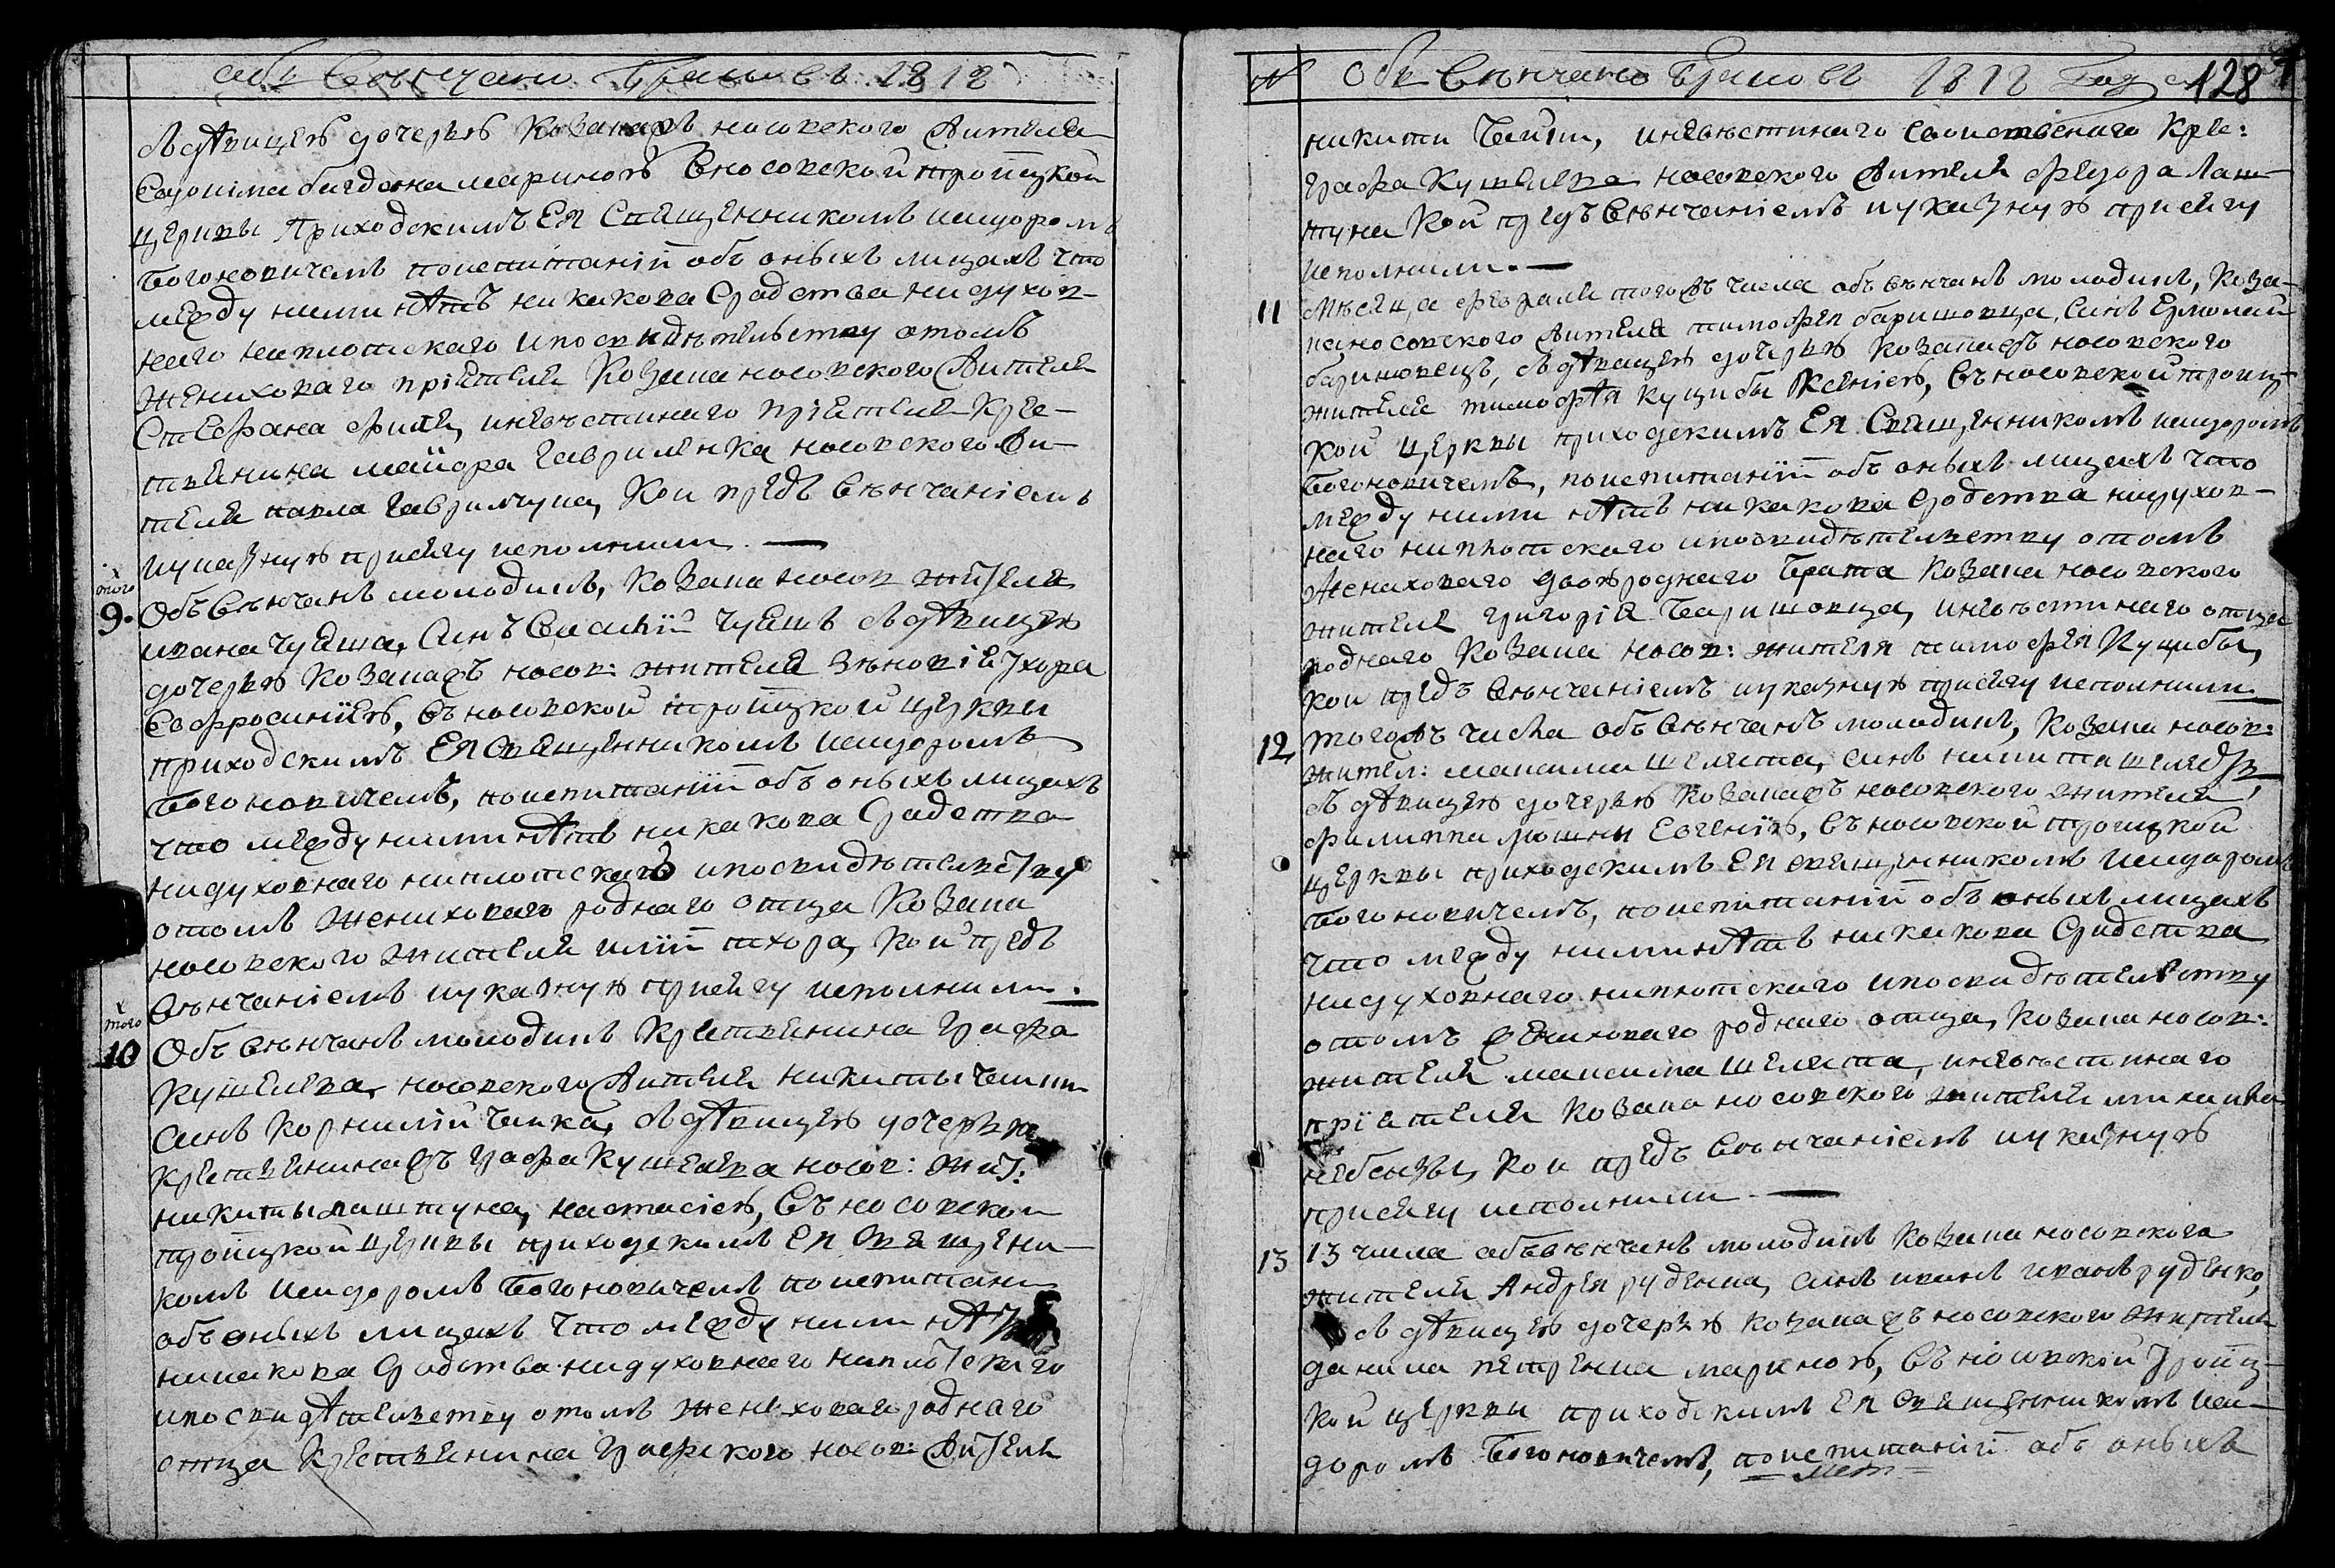 объ Венчани Браковъ 1812
здѣвицею дочерью Козакажъ носовского жителя
Евдокима багдана мариною Вносовской троицкой
церкви Приходскимъ Ея Священникомъ исидоромъ
Богоновичемъ поиспитаніи объ оныхъ лицахъ что
между ними нѣтъ никакова Сродства нидухов-
наго ниплотскаго ипосвидѣтельству отомъ
женихового пріятеля Козака носовского жителя
Стефана филя, иневѣстинаго пріятеля Кре-
стянина маіора Гавриленка носовского жи-
теля павла Гаврилчука, Кои предъ Вѣнчаніемъ
иуказную присягу исполнили. —
того
9. Объ Вѣнчанъ молодикъ, Козака носов жителя
ивана чуяша, Синъ Василій Чуяшъ здѣвицею
дочерью Козакажъ носов: жителя зѣновія тхора
Евфросиніею, Въносовской троицкой церкви
приходскимъ Ея Священникомъ исидоромъ
Богоновичемъ, поиспитаніи объ оныхъ лицахъ
что между ними нѣтъ никакова Сродства
нидуховнаго ниплотскаго ипосвидѣтельству
отомъ жениховаго роднаго отца Козака
носовского жителя иліи тхора, Кои предъ
Вѣнчаніемъ иуказную присягу исполнили.
того
10 Объ Вѣнчанъ молодикъ Крестянина Графа
Кушелева, носовского жителя никиты Чайки
Синъ Корнилій Чайка, здѣвицею дочерью
Крестянинажъ графа Кушелева носов: жит:
никиты лаштуна, настасіею, Въносовской
троицкой церкви приходскимъ Ея Священи-
комъ исидоромъ Богоновичемъ поиспитани
объ оныхъ лицахъ что между ними нѣтъ
никакова Сродства нидуховнаго ниплотскаго
ипосвидѣтельству отомъ жениховаго роднаго
отца Крестянина Графского носов: жителя
N Объ Вѣнчано Браковъ 1812 Года 128
никити Чайки, иневѣстинаго Свойственаго Кре:
графа Кушелева носовского жителя федора Лаш-
туна Кои предъ Вѣнчаніемъ иуказную присягу
исполнили. —
11 Мѣсяца февраля тогожъ числа объ вѣнчанъ молодикъ, Коза-
ка носовского жителя тимофея баришовца, Синъ Ермолай
баришовецъ, здѣвицею дочерью Козакажъ носовского
жителя тимофѣя куцибы Ксеніею, Въносовской троиц-
кой церкви приходскимъ Ея Священникомъ исидоромъ
Богоновичемъ, поиспитаніи объ оныхъ лицахъ что
между ними нѣтъ никакова Сродства нидухов-
наго ниплотскаго ипосвидѣтельству отомъ
Жениховаго двоюроднаго брата Козака носовского
жителя григорія Баришовца, иневѣстинаго отца
роднаго Козака носов: жителя тимофея Куцибы,
кои предъ Вѣнчаніемъ иуказную присягу исполнили.
12 тогожъ числа объ вѣнчанъ молодикъ, Козака носов:
жител: максима шелеста, синъ никита шелестъ,
здѣвицею дочерью Козакажъ носовского жителя
филиппа Евгеніею, Въносовской троицкой
церкви приходскимъ Ея священникомъ исидоромъ
Богоновичемъ, поиспитаніи объ оныхъ лицахъ
что между ними нѣтъ никакова Сродства
нидуховнаго ниплотскаго ипосвидѣтельству
отомъ жениховаго роднаго отца, Козака носов:
жителя максима шелеста, иневѣстинаго
пріятеля Козака носовского жителя михайла
небензы, Кои предъ Вѣнчаніемъ иуказную
присягу исполнили. —
13 13 числа объвѣнчанъ молодикъ Козака носовского
жителя Андрея руденка, синъ иванъ иванъ руденко,
здѣвицею дочерью козакажъ носовского жителя
данила петренка мариною, Въносовской троиц-
кой церкви приходскимъ Ея Священникомъ иси-
доромъ Богоновичемъ, поиспитаніи объ оныхъ